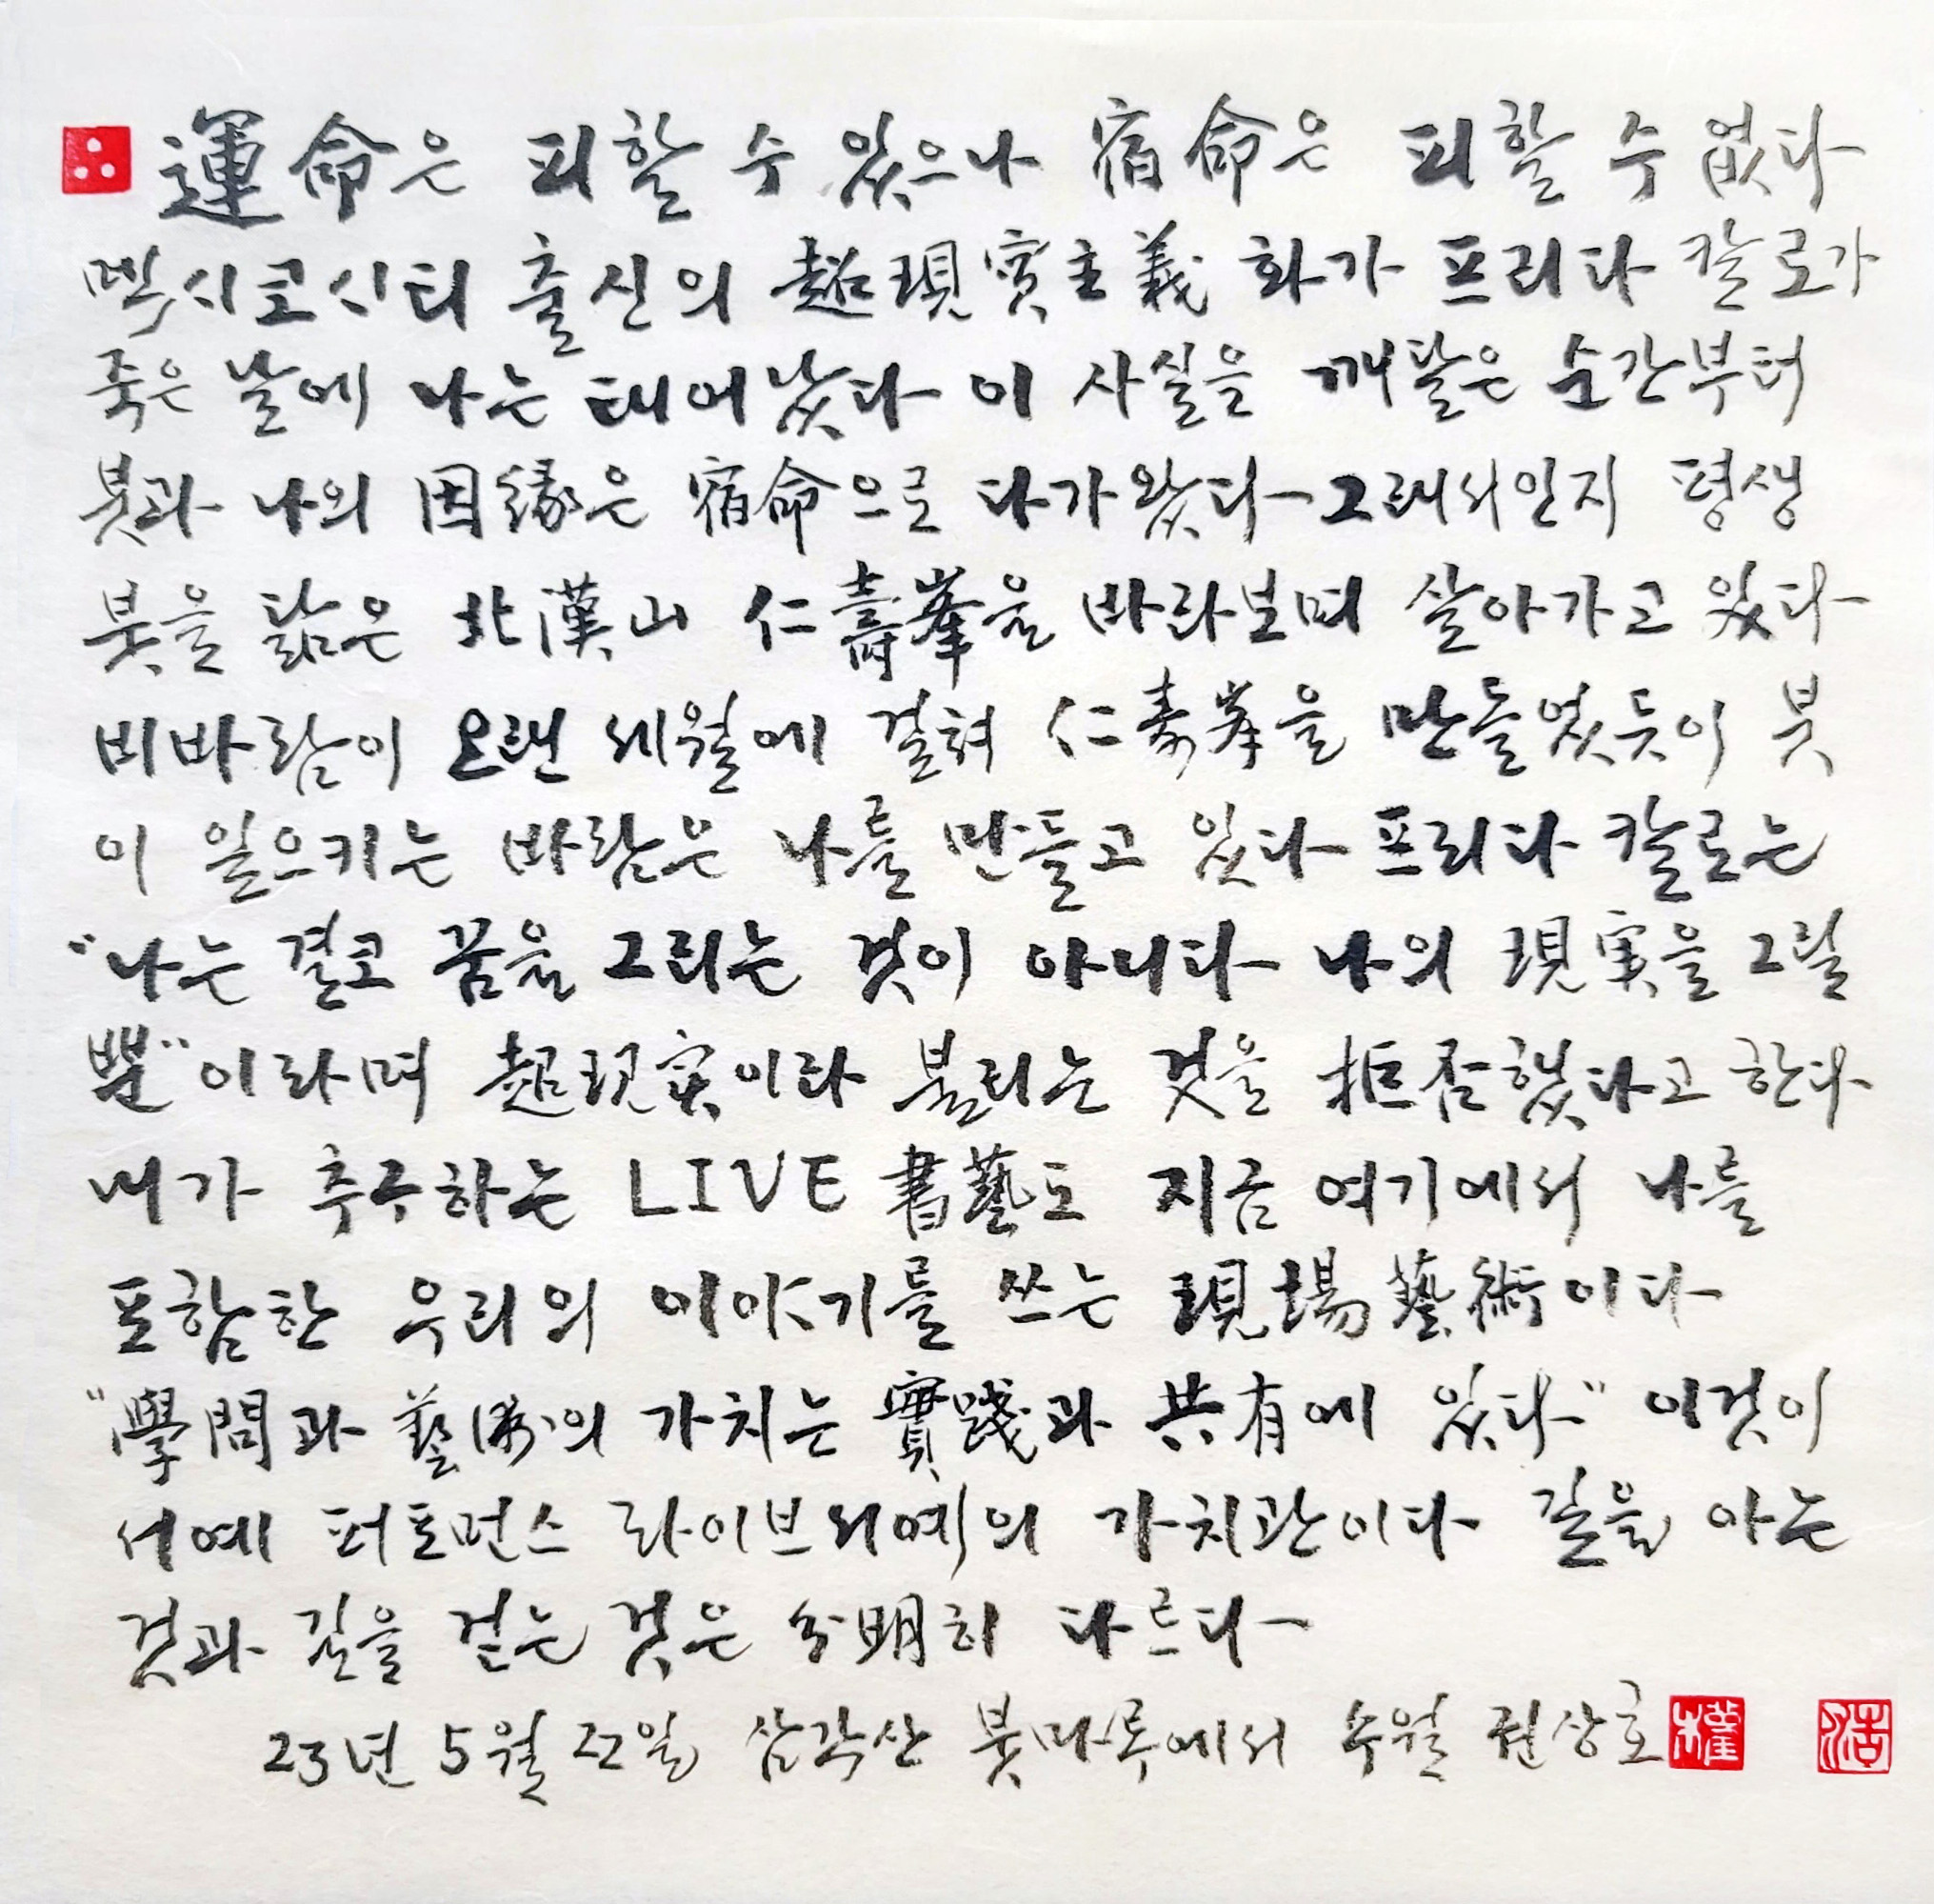 運命은 피할 수 있으나 宿命은 피할 수 없다
멕시코시티 출신의 超現實主義 화가 프리다 칼로가
죽은 날에 나는 태어났다 이 사실을 깨달은 순간부터
붓과 나의 因緣은 宿命으로 다가왔다 그래서인지 평생
붓을 닮은 北漢山 仁壽峯을 바라보며 살아가고 있다
비바람이 오랜 세월에 걸쳐 仁寿峯을 만들었듯이 붓
이 일으키는 바람은 나를 만들고 있다 프리다 칼로는
"나는 결코 꿈을 그리는 것이 아니다 나의 現実을 그릴
뿐"이라며 超現実이라 불리는 것을 拒否했다고 한다
내가 추구하는 LIVE 書藝도 지금 여기에서 나를
포함한 우리의 이야기를 쓰는 現場藝術이다
"學問과 藝術의 가치는 實踐과 共有에 있다" 이것이
서예 퍼포먼스 라이브서예의 가치관이다 길을 아는
것과 길을 걷는 것은 分明히 다르다
23년 5월 22일 삼각산 붓마루에서 수월 권상호 權 浩